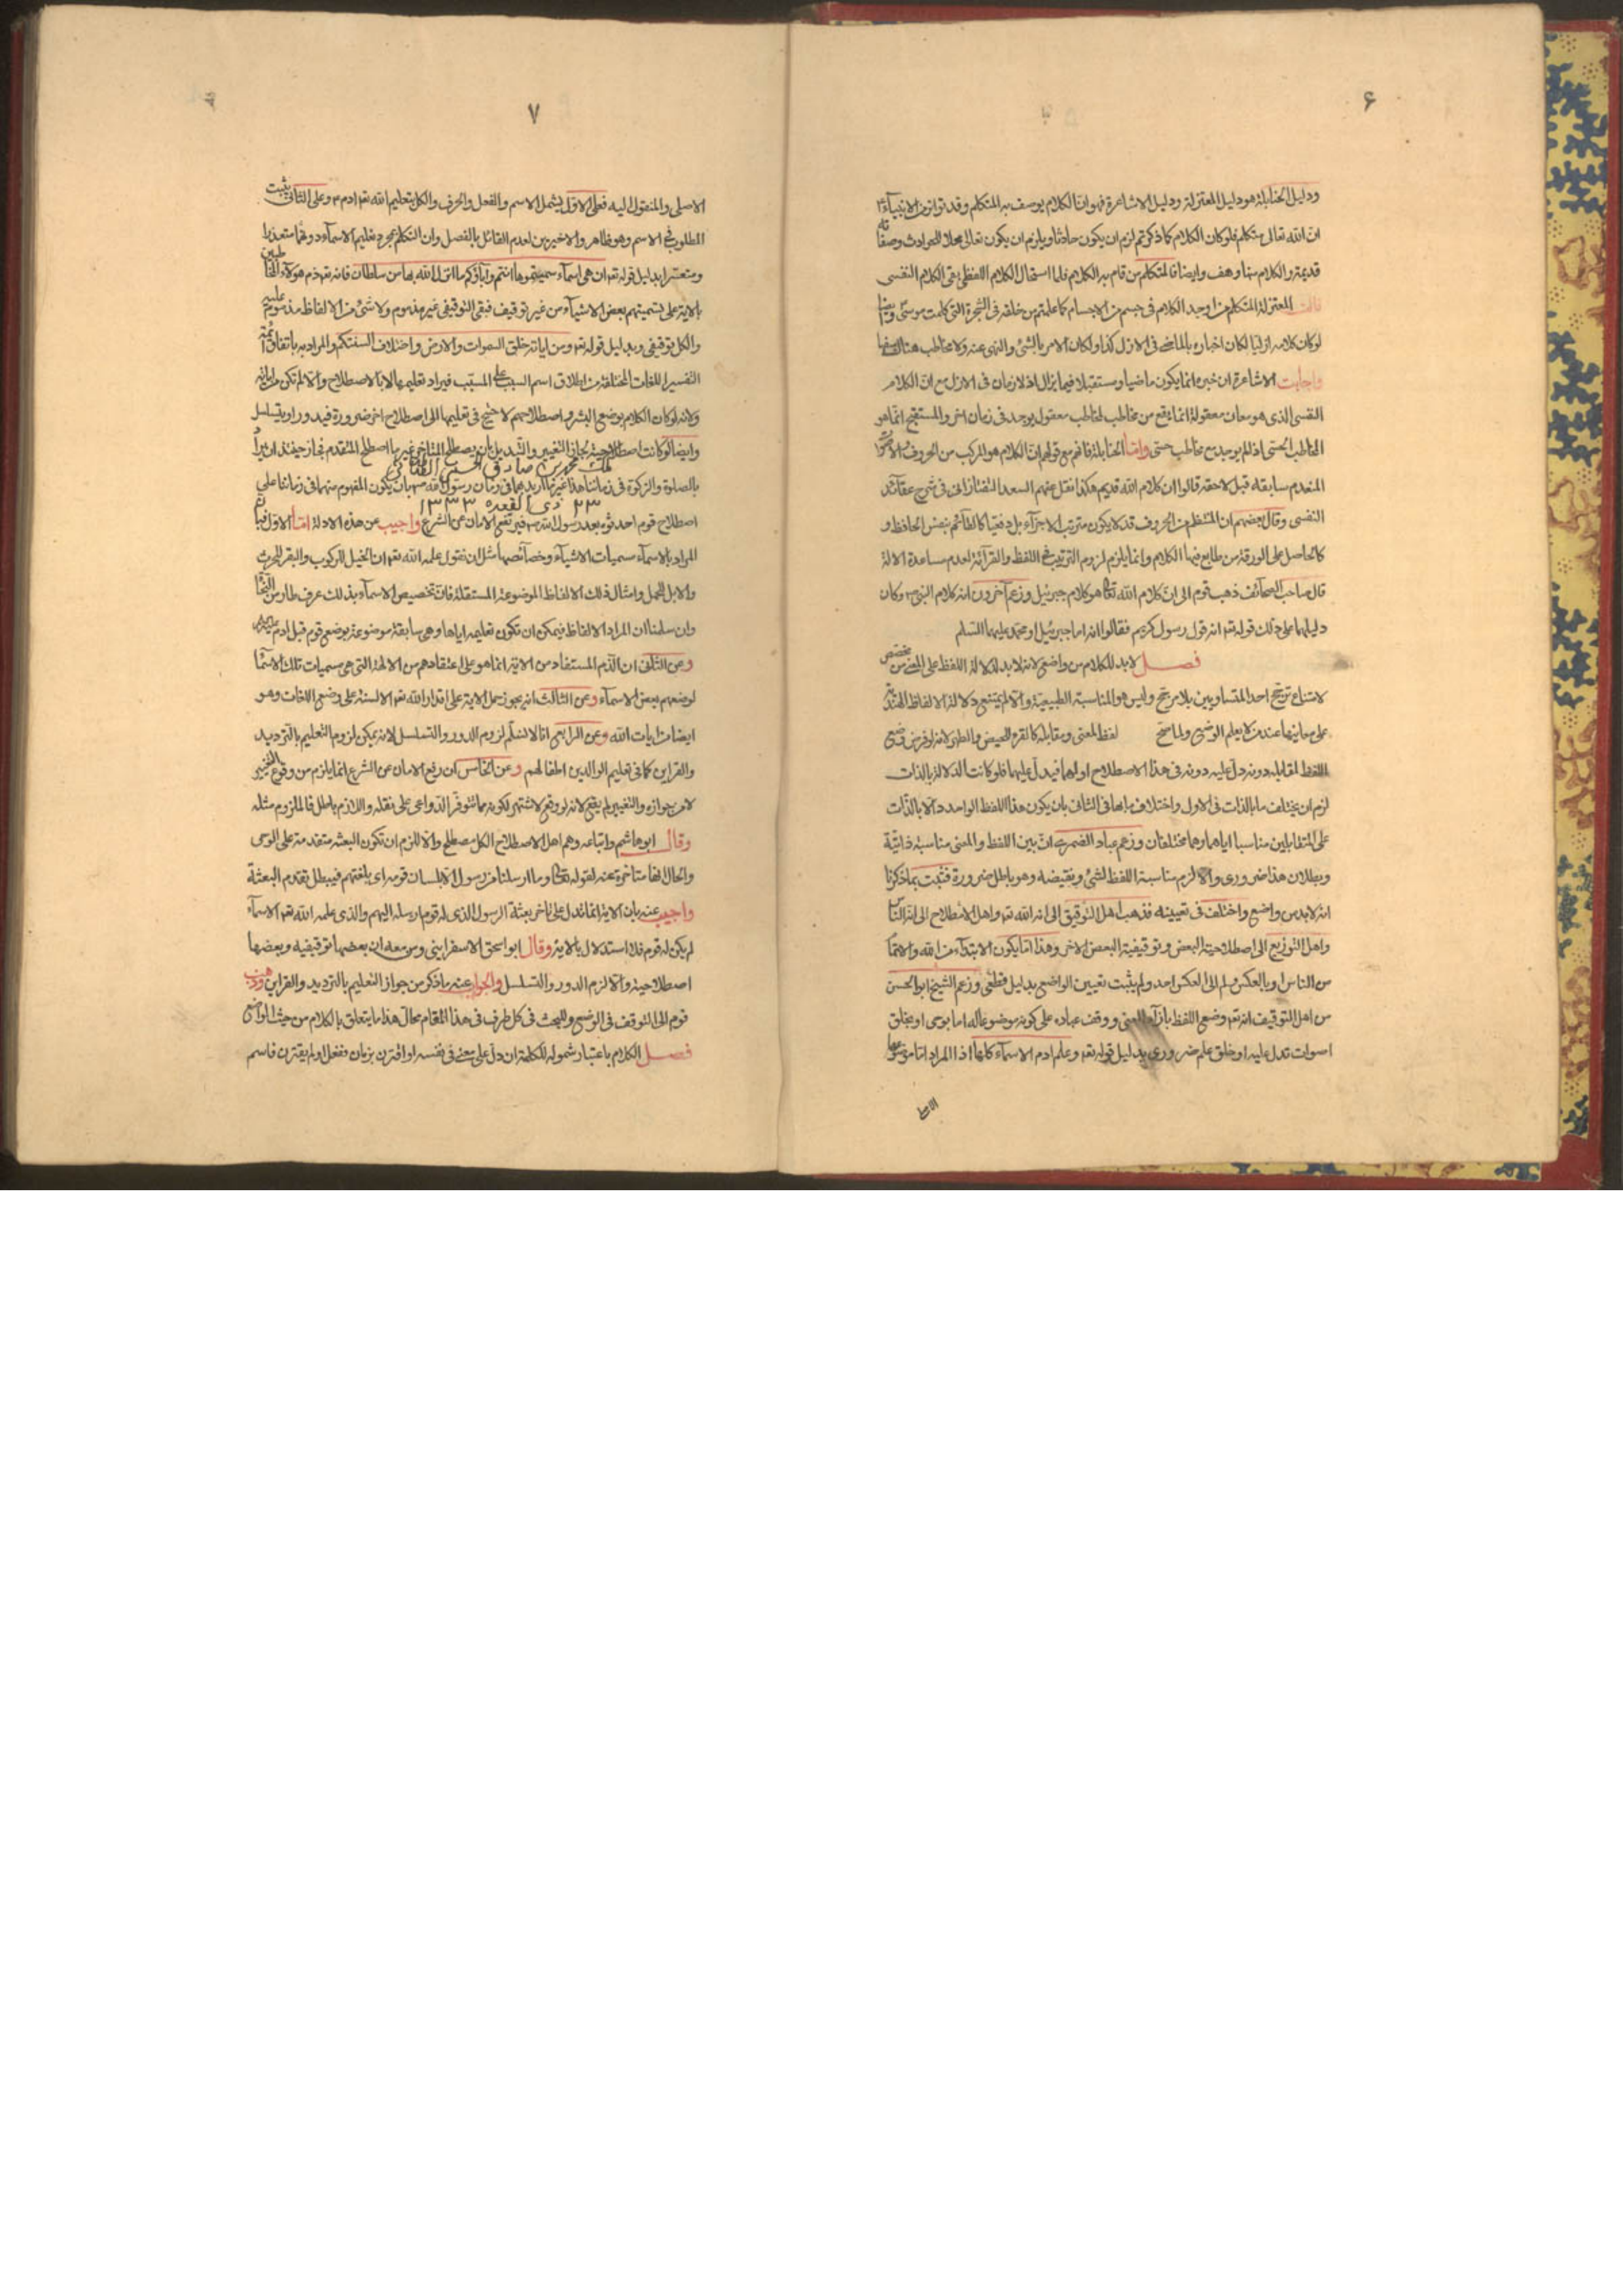 ۶
ودليل الحنابلة هو دليل المعتزلة ودليل الاشاعرة فهو ان الكلام يوصف به المتكلم وقد تواتر من الانبياء
ان الله تعالى متكلم فلو كان الكلام كما ذكرتم لزم ان يكون حادثا ويلزم ان يكون تعالى محلا للحوادث وصفاته
قديمة والكلام منها وهف وايضا فالمتكلم من قام به الكلام فلما استحال الكلام اللفظي بقى الكلام النفسى
قالت المعتزلة المتكلم من اوجد الكلام فى جسم من الاجسام كما علمتم من خلقه فى الشجرة التى كلمت موسى وايضا
لو كان كلامه ازليا لكان اخباره بالماضى فى الازل كذبا ولكان الامر بالشئ والنهى عنه ولا مخاطب هناك سفها
واجابت الاشاعرة ان خبره انما يكون ماضيا ومستقبلا فيما يزال اذ لا زمان فى الازل مع ان الكلام
النفسى الذى هو معان معقولة انما يقع من مخاطب لمخاطب معقول يوجد فى زمان اخر والمستقبح انما هو
المخاطب الحسى اذ لم يوجد مع مخاطب حسى واما الحنابلة فانهم مع قولهم ان الكلام هو المركب من الحروف والاصوات
المنعدم سابقه قبل لاحقه قالوا ان كلام الله قديم هكذا نقل عنهم السعد التفتازانى فى شرح عقائد
النسفى وقال بعضهم ان المنتظم من الحروف قد لا يكون مترتب الاجزآء بل دفعيا كالقائم بنفس الحافظ و
كالحاصل على الورقة من طابع فيها الكلام وانما يلزم لزوم الترتيب فى اللفظ والقرآئة لعدم مساعدة الالة
قال صاحب الصحائف ذهب قوم الى ان كلام الله تعالى هو كلام جبرئيل وزعم آخرون انه كلام النبى ص وكان
دليلهما على ذلك قوله تع انه قول رسول كريم فقالوا انه اما جبرئيل او محمد عليهما السلم
فصل لا بد للكلام من واضع لانه لا بد لدلالة اللفظ على المعنى من مخصص
لامتناع ترجح احد المتساويين بلا مرجح وليس هو المناسبة الطبيعية والا لم يمتنع دلالة الالفاظ الهندية
على معانيها عند من لا يعلم الوضع ولما صح لفظ المعنى ومقابله كالقرء للحيض والطهر لانه لو فرض وضع
اللفظ لمقابله دونه دل عليه دونه فى هذا الاصطلاح او لهما فيدل عليهما فلو كانت الدلالة بالذات
لزم ان يختلف ما بالذات فى الاول واختلاف ما لها فى الثانى بان يكون هذا اللفظ الواحد دالا بالذات
على المتقابلين مناسبا اياهما وهما مختلفان وزعم عباد الضمرى ان بين اللفظ والمعنى مناسبة ذاتية
وبطلان هذا ضرورى والا لزم مناسبة اللفظ لشئ ونقيضه وهو باطل ضرورة فثبت بما ذكرنا
انه لا بد من واضع واختلف فى تعيينه فذهب اهل التوقيف الى انه الله تع واهل الاصطلاح الى انه الناس
واهل التوزيع الى اصطلاحية البعض وتوقيفية البعض الاخر وهذا اما يكون الابتداء من الله والاتمام
من الناس او بالعكس ولم الى العكس احد ولم يثبت تعيين الواضع بدليل قطعى وزعم الشيخ ابو الحسن
من اهل التوقيف انه تع وضع اللفظ بازاء المعنى ووقف عباده على كونه موضوعا له اما بوحى او بخلق
اصوات تدل عليه او خلق علم ضرورى بدليل قوله تع وعلم ادم الاسماء كلها اذا المراد اما موضوعها
الاصل
۷
الاصلى والمنقول اليه فعلى الاول يشمل الاسم والفعل والحرف والكل بتعليم الله تع ادم ع وعلى الثانى يثبت
المطلوب فى الاسم وهو ظاهر والاخيرين لعدم القائل بالفصل وان التكلم بمجرد تعليم الاسماء دونهما متعذرا
ومتعسر ابدليل قوله تع ان هى اسمآء سميتموها انتم وآباؤكم ما انزل الله بها من سلطان فانه تع ذم هولاء القاطبين
بالاية على تسميتهم بعض الاشيآء من غير توقيف فبقى التوقيفى غير مذموم ولا شئ من الالفاظ مذموم عليه
والكل توقيفى وبدليل قوله تع ومن اياته خلق السموات والارض واختلاف السنتكم والمراد به باتفاق ائمة
التفسير اللغات المختلفة من اطلاق اسم السبب على المسبب فيراد تعليمها لا بالاصطلاح والا لم تكن من اياته
ولانه لو كان الكلام بوضع البشر واصطلاحهم لاحتيج فى تعليمها الى اصطلاح اخر ضرورة فيدور او يتسلسل
وايضا لو كانت اصطلاحية لجاز التغيير والتبديل بان يصطلح المتاخر غير ما اصطلح المتقدم فجاز حينئذ ان يراد
ملك محمد بن صادق الحسنى الطباطبائى
بالصلوة والزكوة فى زماننا هذا غير ما اريد بهما فى زمان رسول الله ص بان يكون المفهوم منهما فى زماننا على
۲۳ ذى القعده ۱۳۳۳
اصطلاح قوم احدثوه بعد رسول الله ص فيرتفع الامان عن الشرع واجيب عن هذه الادلة اما الاول فبان
المراد بالاسمآء مسميات الاشيآء وخصآئصها مثل ان نقول علمه الله تع ان الخيل للركوب والبقر للحرث
والابل للحمل وامثال ذلك لا الالفاظ الموضوعة المستقلة فان تخصيص الاسمآء بذلك عرف طار من النحاة
وان سلمنا ان المراد الالفاظ فيمكن ان تكون تعليمه اياها وهى سابقة موضوعة بوضع قوم قبل ادم
وعن الثانى ان الذم المستفاد من الاية انما هو على اعتقادهم من الالهة التى هى مسميات تلك الاسمآء
لوضعهم بعض الاسمآء وعن الثالث انه يجوز حمل الاية على اقدار الله تع الالسنة على وضع اللغات وهو
ايضا من ايات الله وعن الرابع انا لا نسلم لزوم الدور والتسلسل لانه يمكن لزوم التعليم بالترديد
والقراين كما فى تعليم الوالدين اطفالهم وعن الخامس ان رفع الامان عن الشرع انما يلزم من وقوع التغيير
لا من جوازه والتغيير لم يقع لانه لو وقع لاشتهر لكونه مما تتوفر الدواعى على نقله واللازم باطل فالملزوم مثله
وقال ابو هاشم واتباعه وهم اهل الاصطلاح الكل مصطلح والا للزم ان تكون البعثة متقدمة على الوحى
والحال انها متاخرة عنه لقوله تعالى وما ارسلنا من رسول الا بلسان قومه اى بلغتهم فيبطل تقدم البعثة
واجيب عنه بان الاية انما تدل على تاخر بعثة الرسول الذى له قوم ارسله اليهم والذى علمه الله تع الاسمآء
لم يكن له قوم فلا استدلال بالاية وقال ابو اسحق الاسفراينى ومن معه ان بعضها توقيفية وبعضها
اصطلاحية والا لزم الدور والتسلسل والجواب عنه ما ذكر من جواز التعليم بالترديد والقراين وذهب
قوم الى التوقف فى الوضع وللبحث فى كل طرف فى هذا المقام مجال هذا ما يتعلق بالكلام من حيث الواضع
فصل الكلام باعتبار شموله للكلمة ان دل على معنى فى نفسه او اقترن بزمان ففعل او لم يقترن فاسم